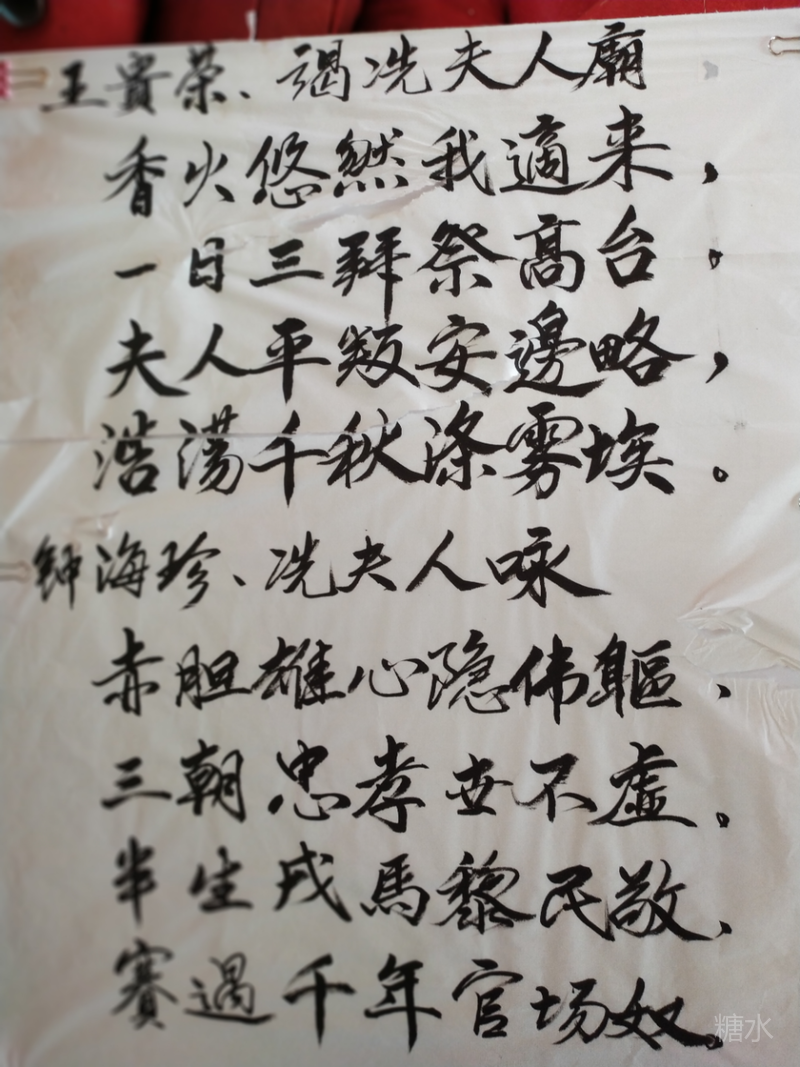 王貴荣、謁冼夫人廟
香火悠然我適来，
一日三拜祭高台。
夫人平叛安邊略，
浩蕩千秋涤雾埃。
钟海珍、冼夫人咏
赤胆雄心隐伟軀、
三朝忠孝世不虚。
半生戎馬黎民敬、
賽過千年官场奴。
糖水